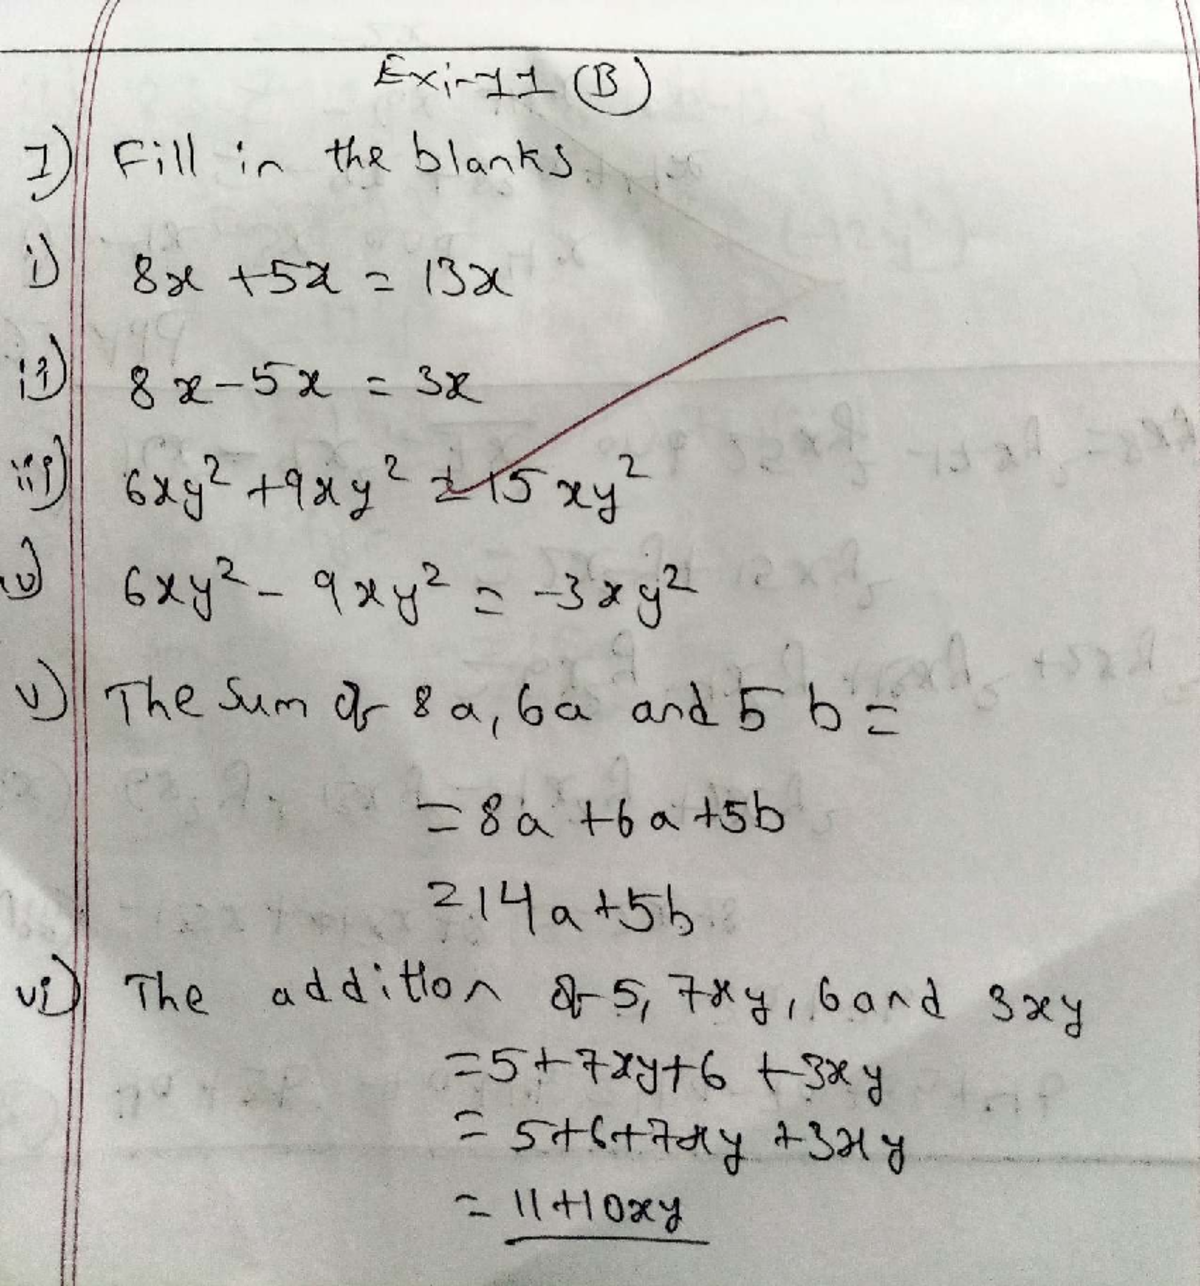 Ex:-11 (B)
1) Fill in the blanks.
i) 8x + 5x = 13x
ii) 8x - 5x = 3x
iii) 6xy² + 9xy² = 15xy²
iv) 6xy² - 9xy² = -3xy²
v) The Sum of 8a, 6a and 5b =
= 8a + 6a + 5b
= 14a + 5b
vi) The addition of 5, 7xy, 6 and 3xy
= 5 + 7xy + 6 + 3xy
= 5 + 6 + 7xy + 3xy
= 11 + 10xy